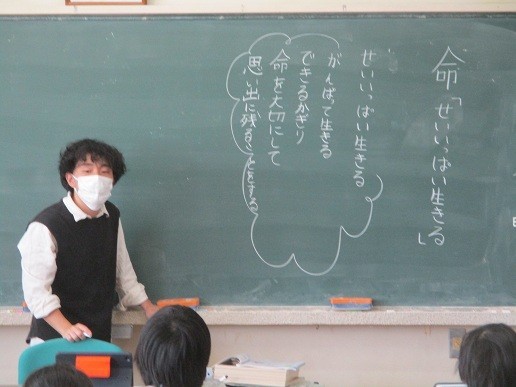 命「せいいっぱい生きる」
せいいっぱい生きる
がんばって生きる
できるかぎり
命を大切にして
思い出に残ることをする